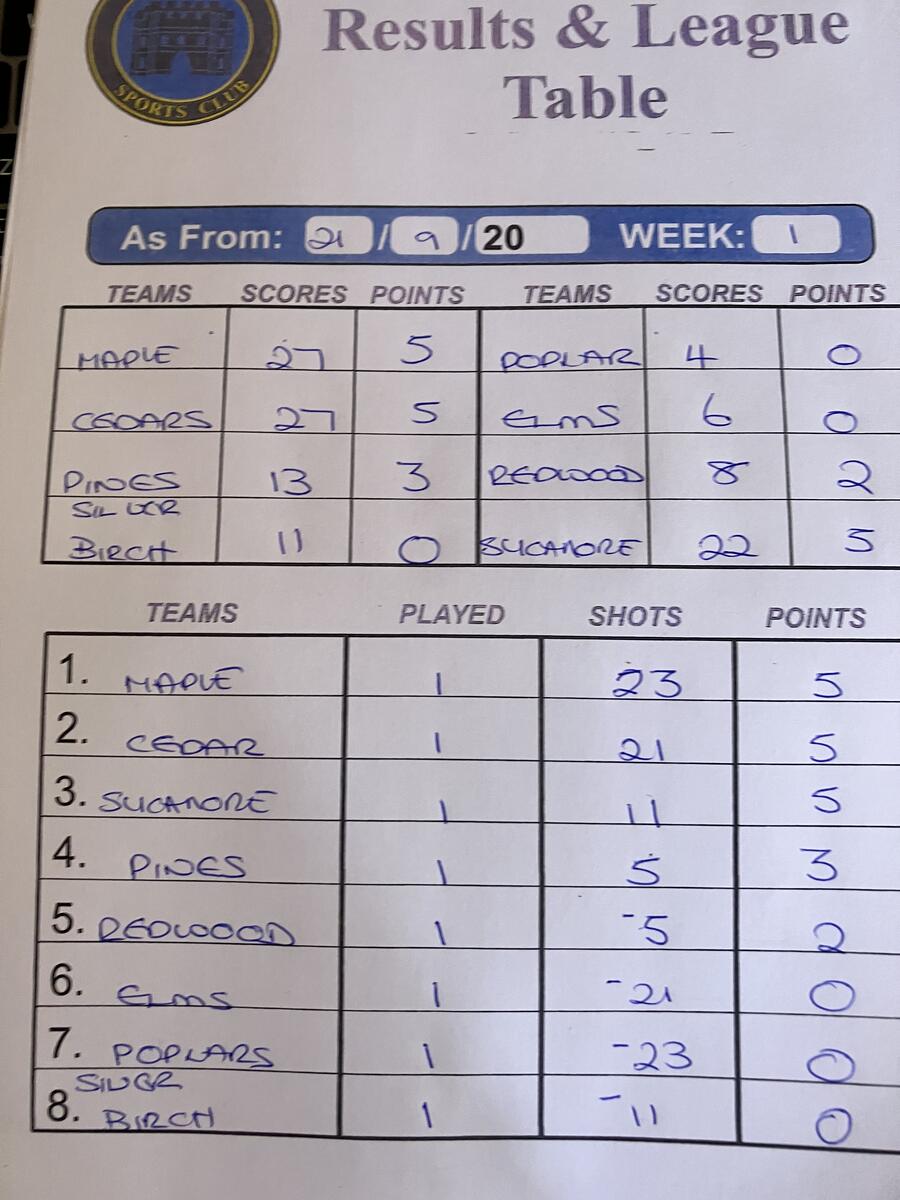 SPORTS CLUB
Results & League
Table
As From: 21/9/20 WEEK: 1
TEAMS SCORES POINTS TEAMS SCORES POINTS
MAPLE 27 5 POPLAR 4 0
CEDARS 27 5 ELMS 6 0
PINES 13 3 REDWOOD 8 2
SILVER
BIRCH 11 0 SYCAMORE 22 5
TEAMS PLAYED SHOTS POINTS
1. MAPLE 1 23 5
2. CEDAR 1 21 5
3. SYCAMORE 1 11 5
4. PINES 1 5 3
5. REDWOOD 1 -5 2
6. ELMS 1 -21 0
7. POPLARS 1 -23 0
SILVER
8. BIRCH 1 -11 0